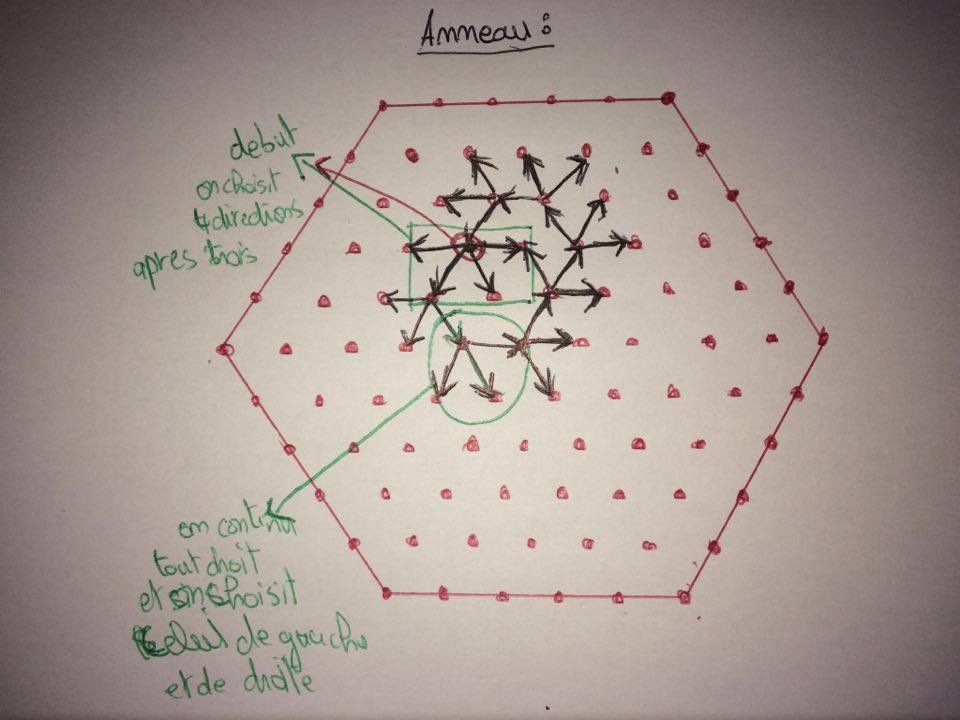 Anneau :
debut
on choisit
4 directions
apres trois
on continu
tout droit
et on choisit
celui de gauche
et de droite